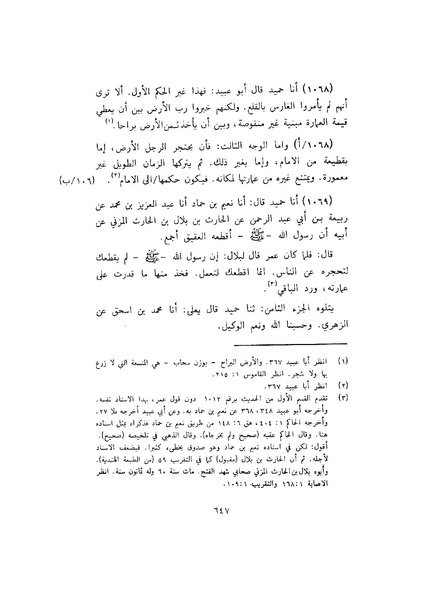 (١٠٦٨) أنا حميد قال أبو عبيد: فهذا غير الحكم الأول. ألا ترى
أنهم لم يأمروا الغارس بالقلع. ولكنهم خيروا رب الأرض بين أن يعطي
قيمة العمارة مبنية غير منقوصة، وبين أن يأخذ ثمن الأرض براحا.(١)
(١٠٦٨/أ) واما الوجه الثالث: فأن يحتجر الرجل الأرض، إما
بقطيعة من الامام، وإما بغير ذلك. ثم يتركها الزمان الطويل غير
معمورة. ويمتنع غيره من عمارتها لمكانه. فيكون حكمها/الى الامام(٢). (١٠٦/ب)
(١٠٦٩) أنا حميد قال: أنا نعيم بن حماد أنا عبد العزيز بن محمد عن
ربيعة بن أبي عبد الرحمن عن الحارث بن بلال بن الحارث المزني عن
أبيه أن رسول الله -ﷺ- أقطعه العقيق أجمع.
قال: فلما كان عمر قال لبلال: إن رسول الله -ﷺ- لم يقطعك
لتحجره عن الناس. انما اقطعك لتعمل. فخذ منها ما قدرت على
عمارته، ورد الباقي(٣).
يتلوه الجزء الثامن: ثنا حميد قال يعلى: أنا محمد بن اسحق عن
الزهري. وحسبنا الله ونعم الوكيل.
(١) انظر أبا عبيد ٣٦٧. والأرض البراح - بوزن سحاب - هي المتسعة التي لا زرع
بها ولا شجر. انظر القاموس ١: ٢١٥.
(٢) انظر أبا عبيد ٣٦٧.
(٣) تقدم القسم الأول من الحديث برقم ١٠١٢ دون قول عمر، بهذا الاسناد نفسه.
وأخرجه أبو عبيد ٣٤٨، ٣٦٨ عن نعيم بن حماد به. وعن أبي عبيد أخرجه بلا ٢٧.
وأخرجه الحاكم ١: ٤٠٤، هق ٦: ١٤٨ من طريق نعيم بن حماد فذكراه بمثل اسناده
هنا. وقال الحاكم عقبه (صحيح ولم يخرجاه). وقال الذهبي في تلخيصه (صحيح).
أقول: لكن في اسناده نعيم بن حماد وهو صدوق يخطىء كثيرا. فيضعف الاسناد
لأجله. ثم أن الحارث بن بلال (مقبول) كما في التقريب ٥٩ (من الطبعة الهندية).
وأبوه بلال بن الحارث المزني صحابي شهد الفتح. مات سنة ٦٠ وله ثمانون سنة. انظر
الاصابة ١: ١٦٨ والتقريب ١: ١٠٩.
٦٤٧